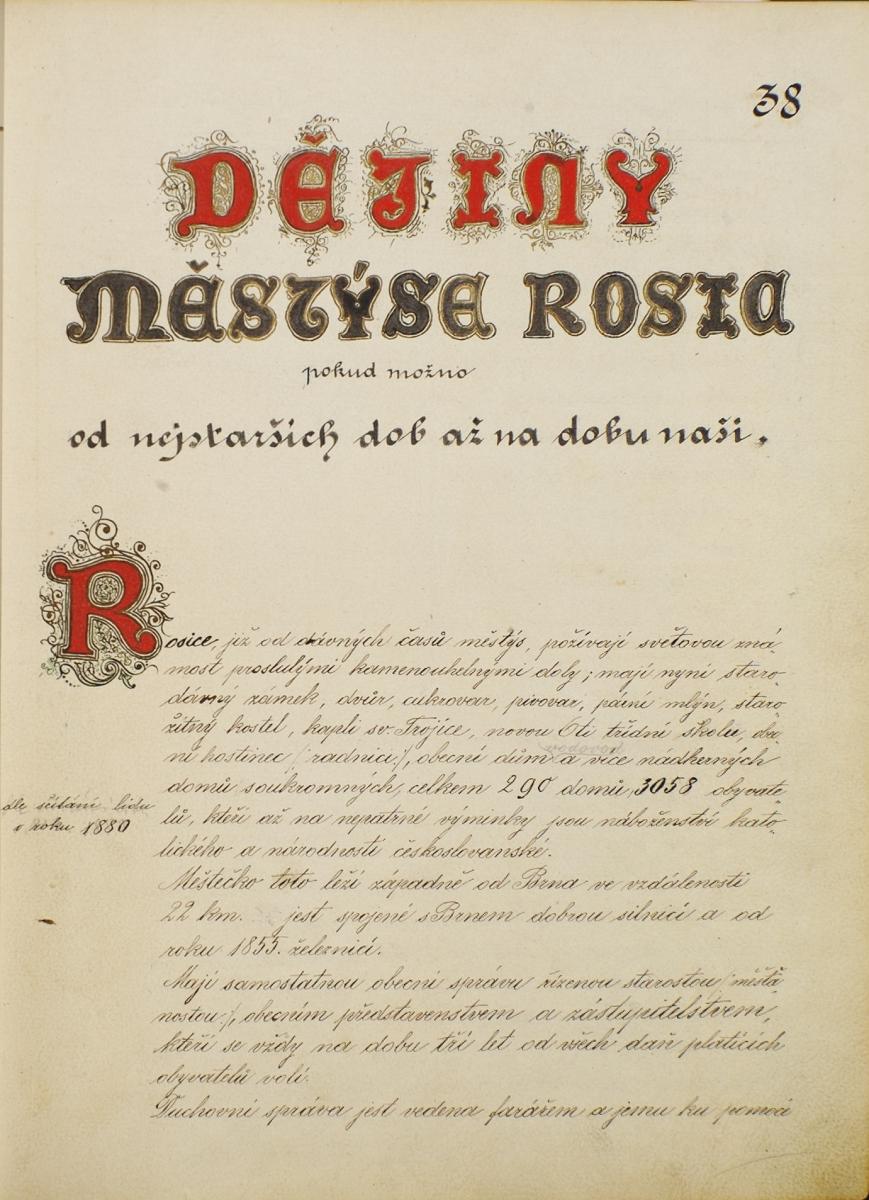 38
DĚJINY
MĚSTÝSE ROSIC
pokud možno
od nejstarších dob až na dobu naši.
Rosice, již od dávných časů městýs, požívají světovou zná-
most proslulými kamenouhelnými doly; mají nyní staro-
dávný zámek, dvůr, cukrovar, pivovar, párni mlýn, staro-
žitný kostel, kapli sv. Trojice, novou 6ti třídní školu, obe-
ní hostinec (: radnici :), obecní dům a více nádherných
vodovod
domů soukromných, celkem 290 domů, 3058 obyvate-
dle sčítání lidu
v roku 1880
lů, kteří až na nepatrné výminky jsou náboženství kato-
lického a národnosti československé.
Městečko toto leží západně od Brna ve vzdálenosti
22 km. jest spojené s Brnem dobrou silnicí a od
roku 1855. železnicí.
Mají samostatnou obecní správu řízenou starostou (: měšťa-
nostou :), obecním představenstvem a zástupitelstvem,
kteří se vždy na dobu tří let od všech daň platících
obyvatelů volí.
Duchovní správa jest vedena farářem a jemu ku pomoci